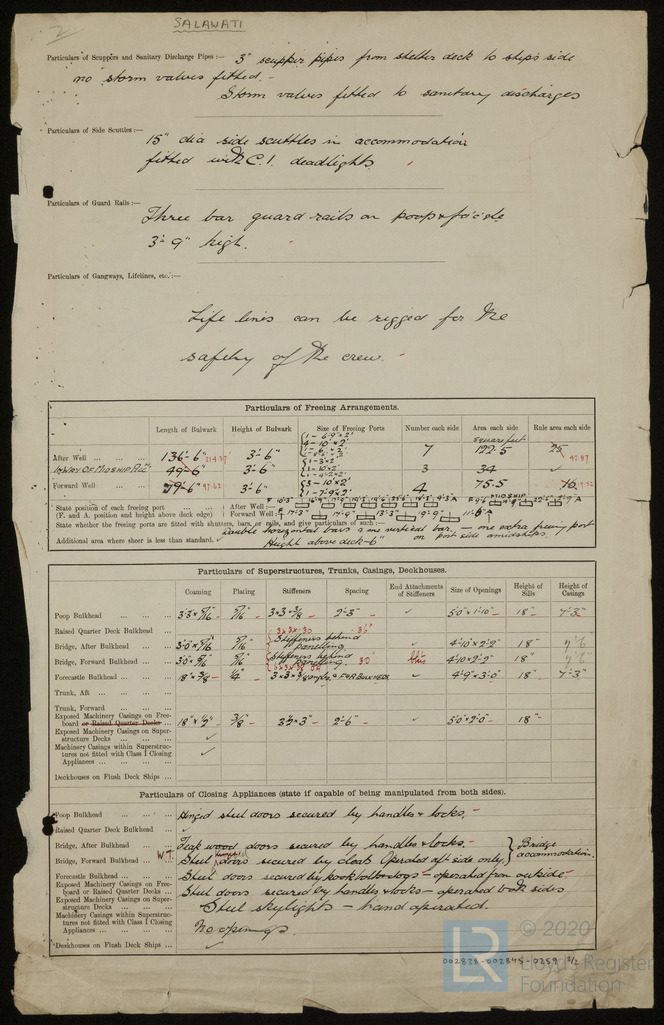 SALAWATI
2
Particulars of Scuppers and Sanitary Discharge Pipes :— 3" scupper pipes from shelter deck to ships side
no storm valves fitted. -
Storm valves fitted to sanitary discharges
Particulars of Side Scuttles :—
15" dia side scuttles in accommodation
fitted with C.I. deadlights.
Particulars of Guard Rails :—
Three bar guard rails on poop & fo'c'sle
3'-9" high.
Particulars of Gangways, Lifelines, etc. :—
Life lines can be rigged for the
safety of the crew.
Particulars of Freeing Arrangements.
Length of Bulwark Height of Bulwark Size of Freeing Ports Number each side Area each side Rule area each side
square feet
After Well 136'-6" 3'-6" 7 122.5 25
IN WAY OF MIDSHIP 49'-6" 3'-6" 3 34 ✓
Forward Well 79'-6" 97.62 3'-6" 3-10'×2' 4 75.5 76
State position of each freeing port After Well :—
(F. and A. position and height above deck edge) Forward Well :—
State whether the freeing ports are fitted with shutters, bars, or rails, and give particulars of such :—
Double horizontal bars & one vertical bar — one extra freeing port
Additional area where sheer is less than standard. Height above deck - 6" on port side amidships.
Particulars of Superstructures, Trunks, Casings, Deckhouses.
Coaming Plating Stiffeners Spacing End Attachments of Stiffeners Size of Openings Height of Sills Height of Casings
Poop Bulkhead 5/16" 3×3×3/8 2'-3" ✓ 5'0"×1'-10" 18" 7'-3"
Raised Quarter Deck Bulkhead
Bridge, After Bulkhead 3'0"×5/16 5/16" Stiffeners behind panelling ✓ 4'-10"×2'-9" 18" 7'6
Bridge, Forward Bulkhead 3'0"×5/16 5/16" Stiffeners behind panelling 30" 4'-10"×2'-2" 18" 7'6
Forecastle Bulkhead 18"×3/8 1/4" ✓ 4'9"×3'-0" 18" 7'-3"
Trunk, Aft
Trunk, Forward
Exposed Machinery Casings on Freeboard or Raised Quarter Decks 18"×1/2" 3/8" 3½×3" 2'-6" ✓ 5'0"×2'-0" 18"
Exposed Machinery Casings on Superstructure Decks ✓
Machinery Casings within Superstructures not fitted with Class I Closing Appliances ✓
Deckhouses on Flush Deck Ships
Particulars of Closing Appliances (state if capable of being manipulated from both sides).
Poop Bulkhead Hinged steel doors secured by handles & locks.
Raised Quarter Deck Bulkhead ✓
Bridge, After Bulkhead Teak wood doors secured by handles & locks. } Bridge
Bridge, Forward Bulkhead W.T. Steel hinged doors secured by cleats Operated aft side only } accommodation.
Forecastle Bulkhead Steel doors secured by hook bolts & dogs — operated from outside
Exposed Machinery Casings on Freeboard or Raised Quarter Decks Steel doors secured by handles & locks — operated both sides
Exposed Machinery Casings on Superstructure Decks Steel skylights — hand operated.
Machinery Casings within Superstructures not fitted with Class I Closing Appliances No openings.
Deckhouses on Flush Deck Ships
LR © 2020
Lloyd's Register
Foundation
002838-002845-0259 2/2